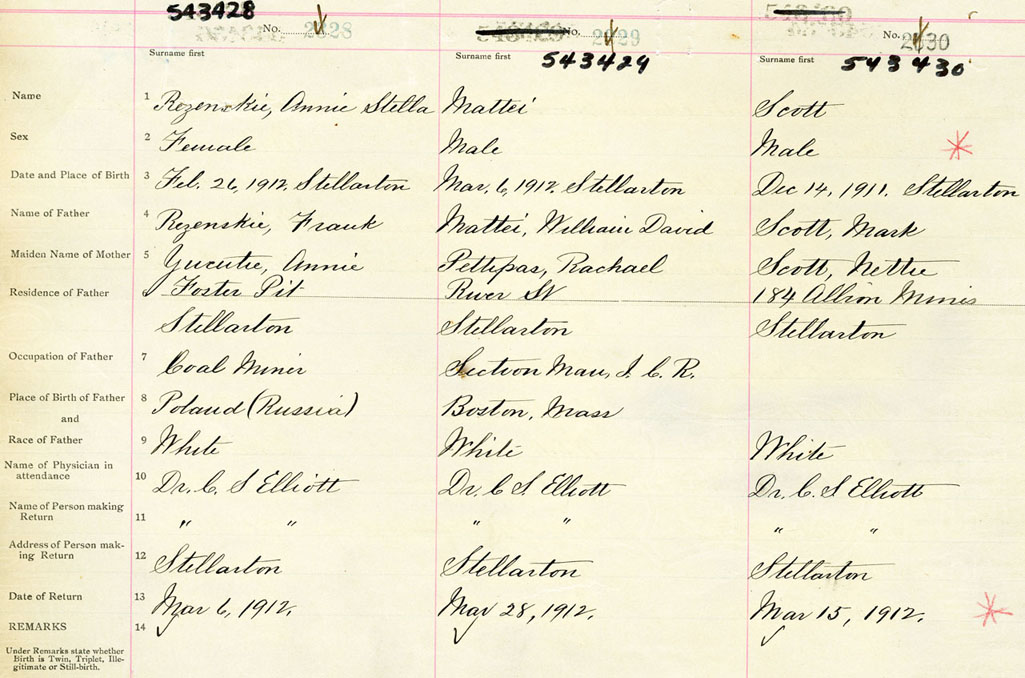 543428
No. 2828
2829
543429
No. 2830
543430
Surname first
Surname first
Surname first
Name 1 Rozenskie, Annie Stella Mattei Scott
Sex 2 Female Male Male
Date and Place of Birth 3 Feb. 26, 1912. Stellarton Mar. 6, 1912. Stellarton Dec 14, 1911. Stellarton
Name of Father 4 Rozenskie, Frank Mattei, William David Scott, Mark
Maiden Name of Mother 5 Annie Pettipas, Rachael Scott, Nettie
Residence of Father 6 Foster Pit River St 184 Albion Mines
Stellarton Stellarton Stellarton
Occupation of Father 7 Coal Miner Section Man, I. C. R.
Place of Birth of Father 8 Poland (Russia) Boston, Mass
and
Race of Father 9 White White White
Name of Physician in
attendance 10 Dr. C. S Elliott Dr. C S Elliott Dr. C. S Elliott
Name of Person making
Return 11 " " " " " "
Address of Person mak-
ing Return 12 Stellarton Stellarton Stellarton
Date of Return 13 Mar 6, 1912. Mar 28, 1912. Mar 15, 1912.
REMARKS 14
Under Remarks state whether
Birth is Twin, Triplet, Ille-
gitimate or Still-birth.